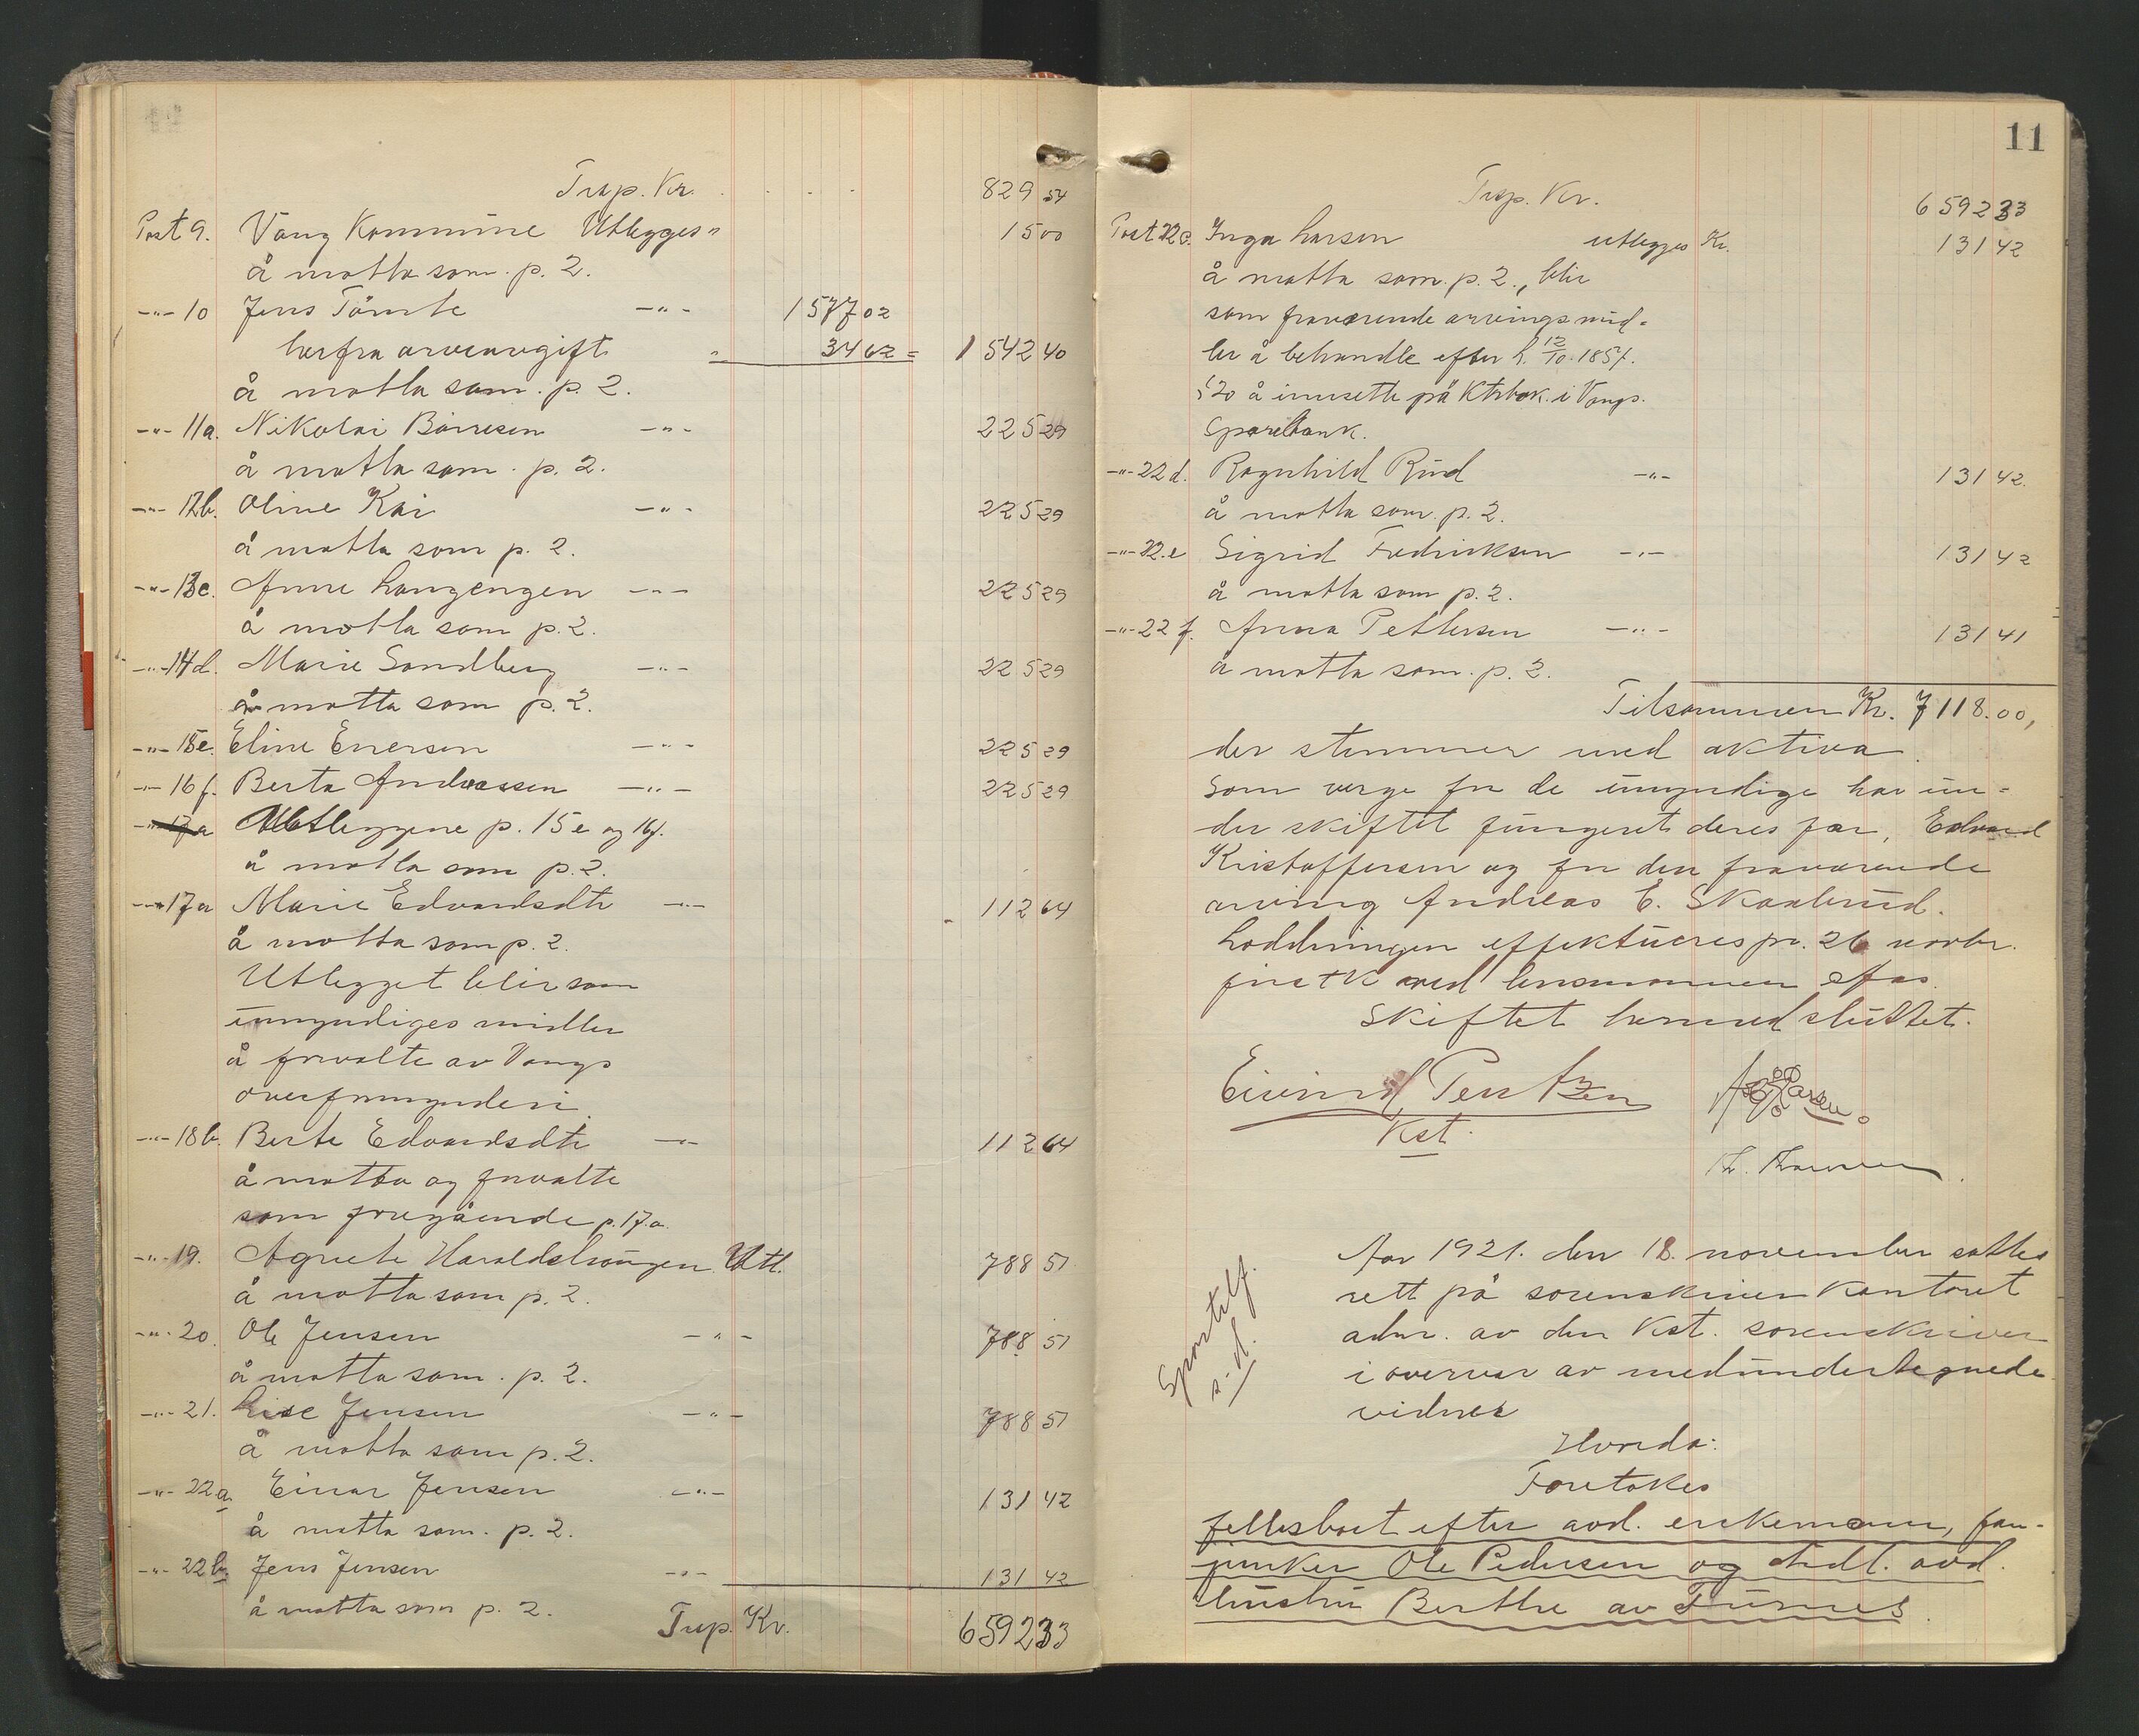 Trsp. Kr. . . . . 829 54
Post 9. Vang Kommune Utlegges " 15 00
å motta som p. 2.
-"- 10 Jens Tömte -"- 1577 02
herfra arveavgift " 34 62 = 1542 40
å motta som p. 2.
-"- 11a. Nikolai Börresen -"- 225 29
å motta som p. 2.
-"- 12b. Oline Kai -"- 225 29
å motta som p. 2.
-"- 13c. Anne Langengen -"- 225 29
å motta som p. 2.
-"- 14d. Marie Sandberg -"- 225 29
å motta som p. 2.
-"- 15e. Eline Enersen -"- 225 29
-"- 16f. Berta Andreassen -"- 225 29
Utleggene p. 15e og 16f.
å motta som p. 2.
-"- 17a Marie Edvardsdtr -"- 112 64
å motta som p. 2.
Utlegget blir som
umyndiges midler
å forvalte av Vangs
overformynderi.
-"- 18b. Berte Edvardsdtr -"- 112 64
å motta og forvalte
som foregående p. 17.a.
-"- 19. Agnete Haraldshaugen Utl. 788 51
å motta som p. 2.
-"- 20. Ole Jensen -"- 788 51
å motta som p. 2.
-"- 21. Lise Jensen -"- 788 51
å motta som p. 2.
-"- 22a. Einar Jensen -"- 131 42
å motta som p. 2.
-"- 22b. Jens Jensen -"- 131 42
å motta som p. 2.
Trsp. Kr. 6592 33
11
Trsp. Kr. 6592 33
Post 22c. Inga Larsen utlegges Kr. 131 42
å motta som p. 2., blir
som fraværende arvings mid-
ler å behandle efter l. 12/10. 1857.
§ 20 å innsette på Ktrbok. i Vangs
Sparebank.
-"- 22d. Ragnhild Rud -"- 131 42
å motta som p. 2.
-"- 22.e Sigrid Fredriksen -"- 131 42
å motta som p. 2.
-"- 22f. Anna Pettersen -"- 131 41
å motta som p. 2.
Tilsammen Kr. 7118.00,
der stemmer med aktiva.
Som verge for de umyndige har un-
der skiftet fungeret deres far, Edvard
Kristoffersen og for den fraværende
arving Andreas E. Skaabrud.
Loddningen effektueres pr. 26 novbr.
med lensmannen
Skiftet hermed sluttet.
Eivind Pentzen
Kst.
Aar 1921. den 18. november sattes
rett på sorenskriverkontoret
adm. av den Kst. sorenskriver
i overvær av medundertegnede
vidner
Sportelf.
s. d.
Hvorda:
Foretokes
fellesboet efter avd. enkemann, fan-
junker Ole Pedersen og tidl. avd.
hustru Berthe av Furnes.